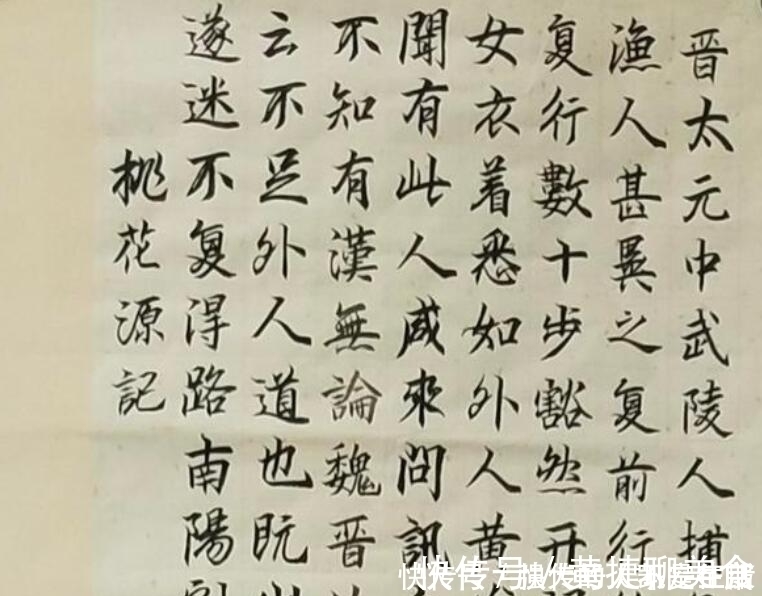 晋太元中武陵人捕
渔人甚異之复前行
复行數十步豁然开
女衣着悉如外人黄
聞有此人咸來問訊
不知有漢無論魏晋
云不足外人道也既
遂迷不复得路南陽
桃花源記
快传号